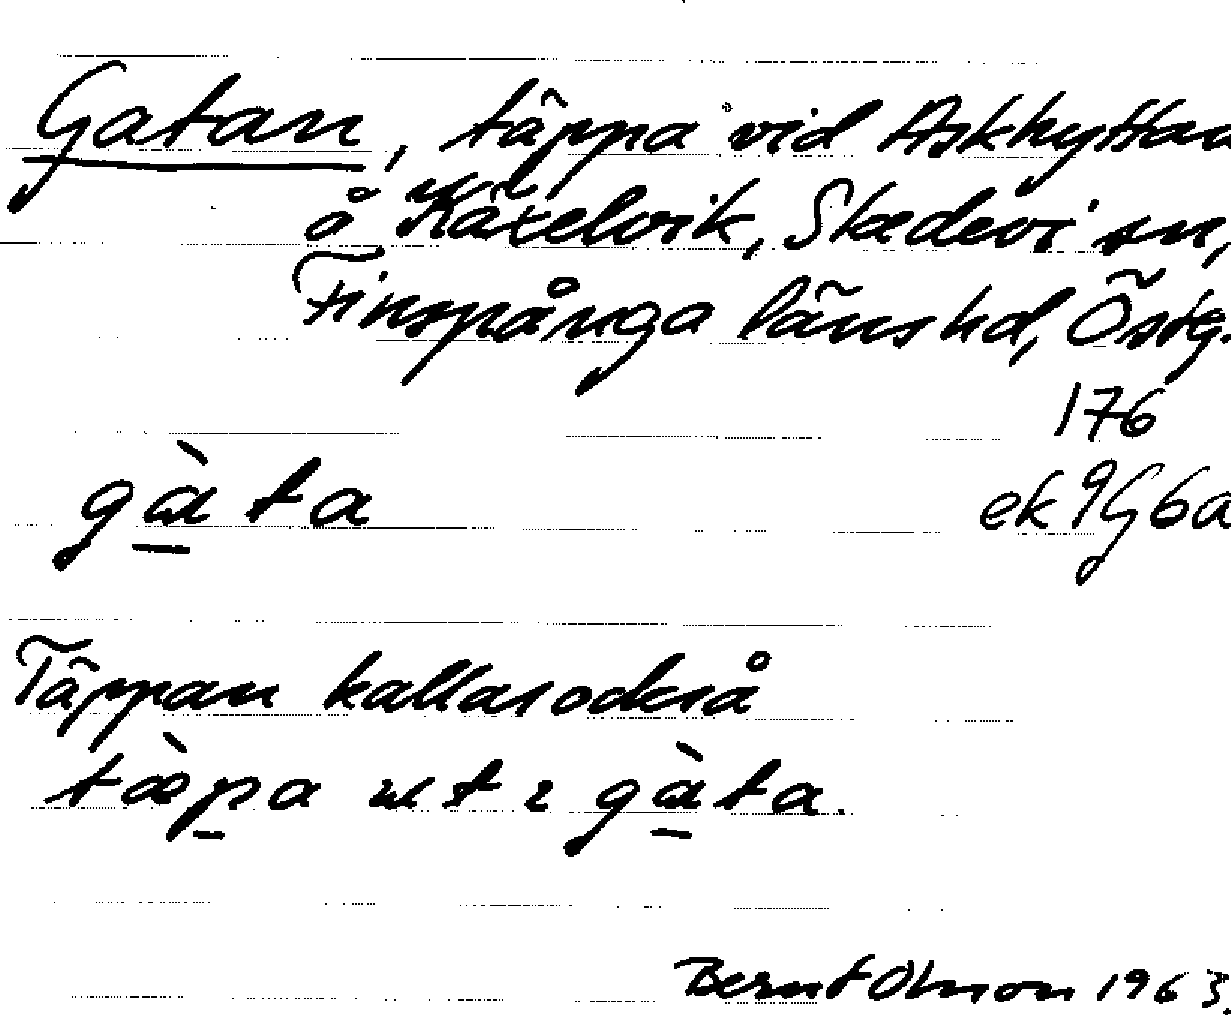 Gatan, täppa vid Askhyttan
å Käxelvik, Skedevi sn,
Finspånga läns hd, Östg.
176
gàta ek 9G6a
Täppan kallas också
tæ̀pa
gàta.
Bernt Olsson 1963.